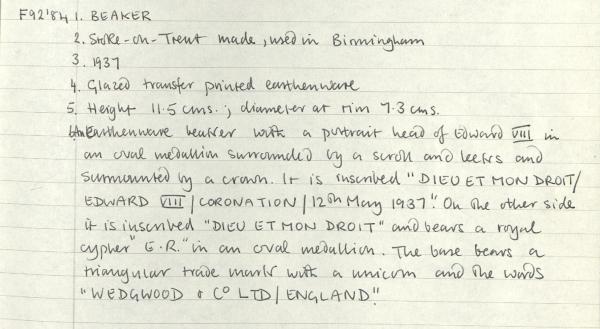 F92'84 1. BEAKER
2. Stoke-on-Trent made, used in Birmingham
3. 1937
4. Glazed transfer printed earthenware
5. Height 11.5 cms.; diameter at rim 7.3 cms.
6. An Earthenware beaker with a portrait head of Edward VIII in
an oval medallion surrounded by a scroll and leeks and
surmounted by a crown. It is inscribed "DIEU ET MON DROIT/
EDWARD VIII / CORONATION / 12th May 1937". On the other side
it is inscribed "DIEU ET MON DROIT" and bears a royal
cypher "E.R." in an oval medallion. The base bears a
triangular trade mark with a unicorn and the words
"WEDGWOOD & Co LTD / ENGLAND".